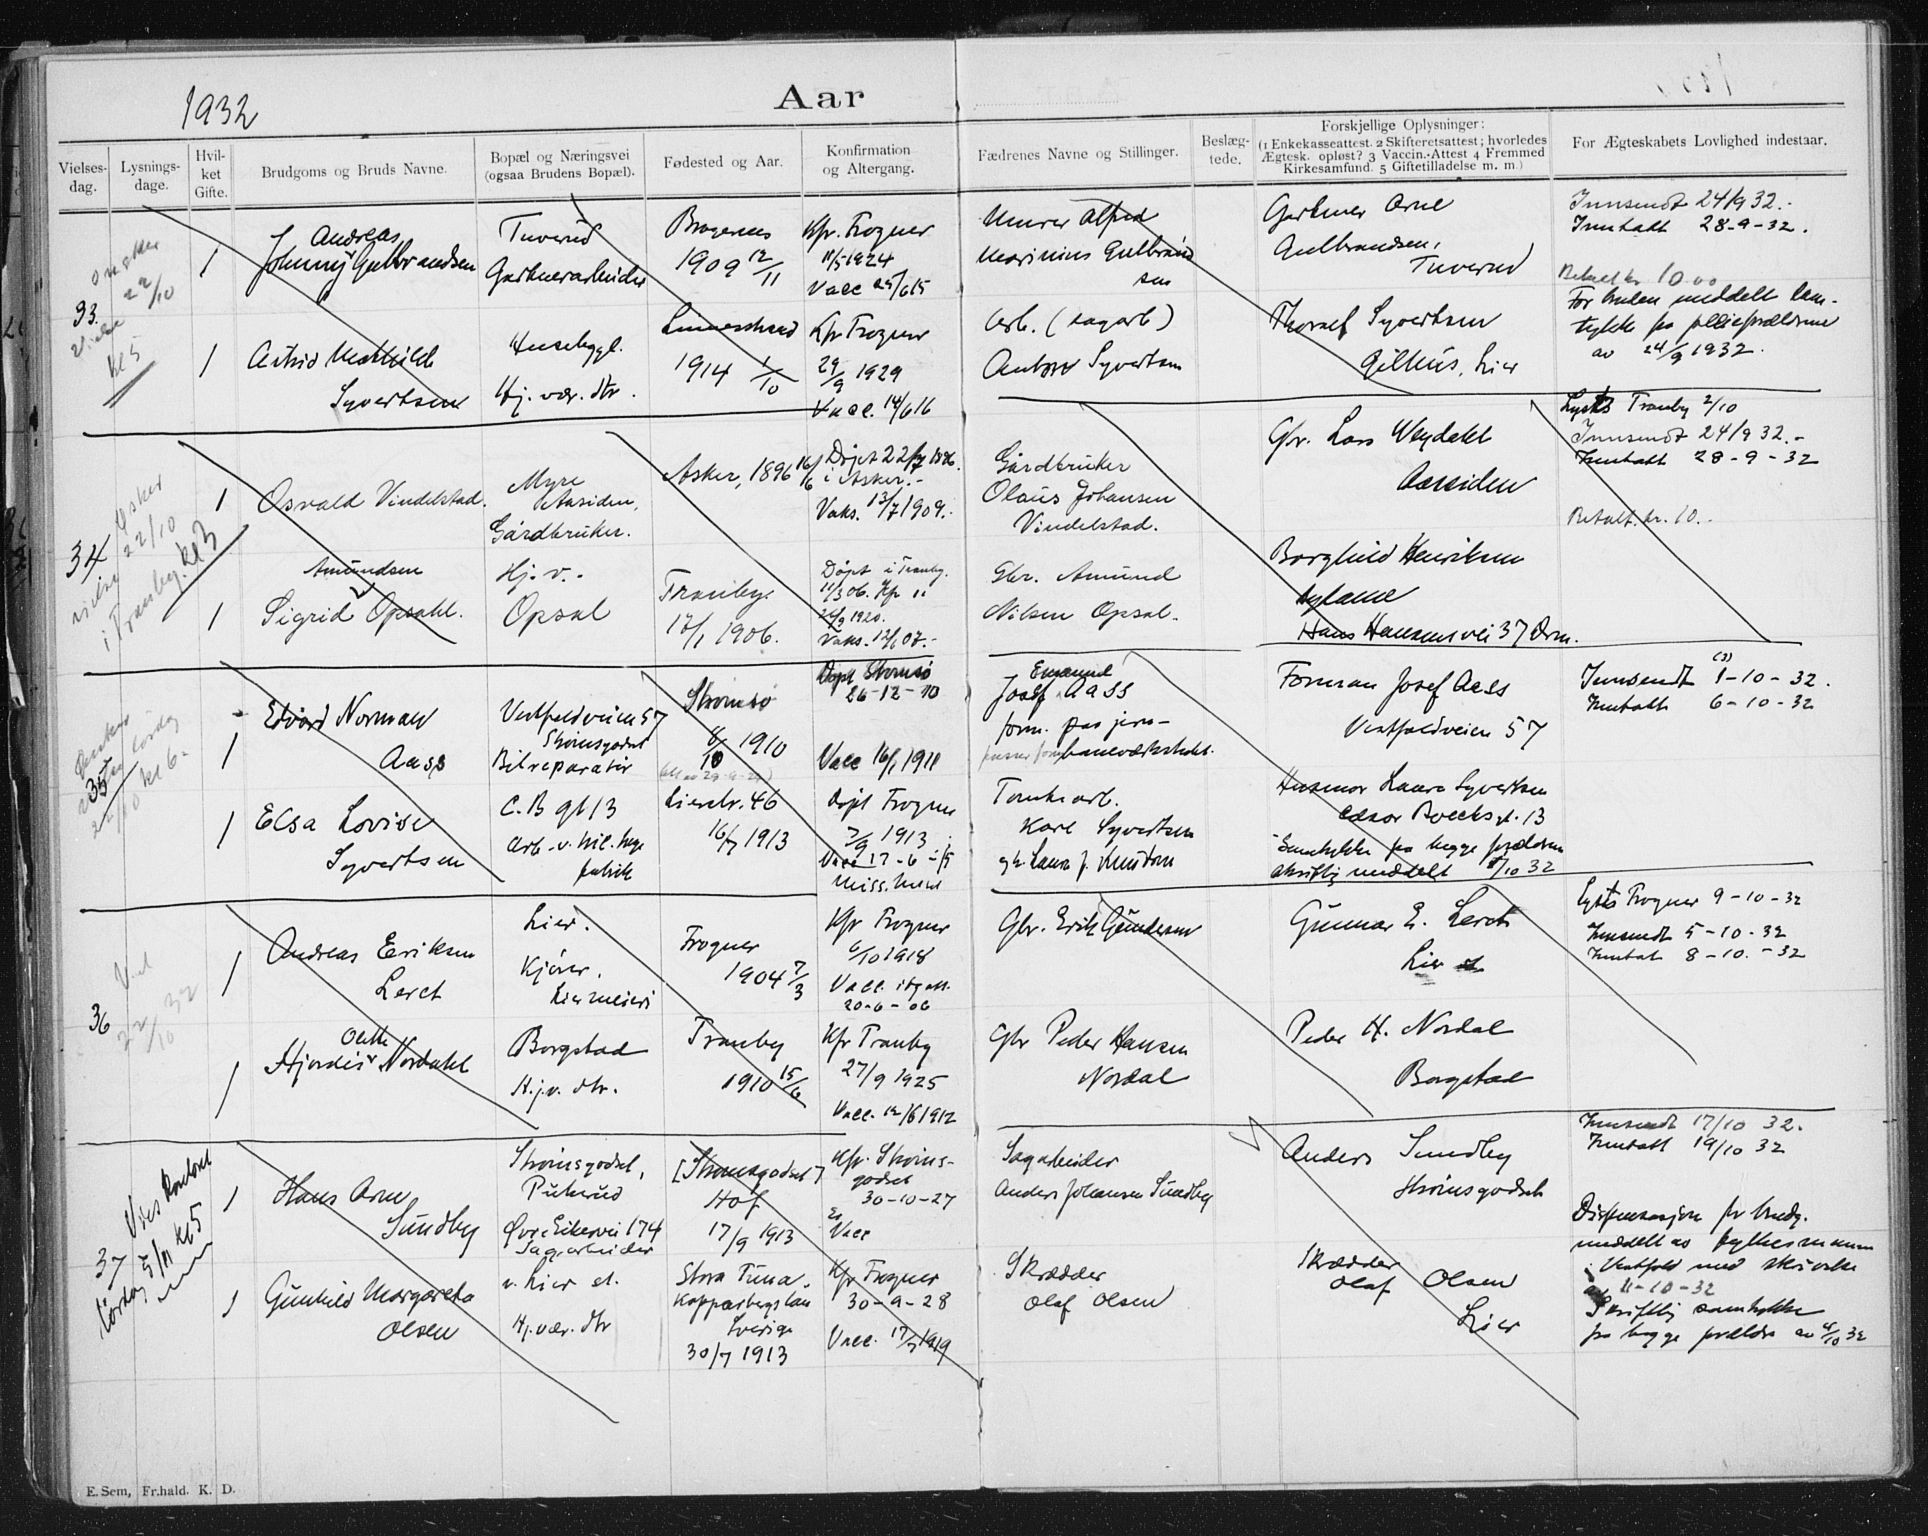 1932
Aar
Vielses-
dag.
Lysnings-
dage.
Hvil-
ket
Gifte.
Brudgoms og Bruds Navne.
Bopæl og Næringsvei
(ogsaa Brudens Bopæl).
Fødested og Aar.
Konfirmation
og Altergang.
Fædrenes Navne og Stillinger.
Beslæg-
tede.
Forskjellige Oplysninger:
(1 Enkekasseattest. 2 Skifteretsattest; hvorledes
Ægtesk. opløst? 3 Vaccin.-Attest 4 Fremmed
Kirkesamfund. 5 Giftetilladelse m. m.)
For Ægteskabets Lovlighed indestaar.
33.
ønsker
22/10
Vielse
kl 5
1
Andreas
Johnny Gulbrandsen
Tuverud
Gartnerarbeider
Bragernes
1909 12/11
Kfr. Frogner
11/5 1924
Vacc 25/6 15
Murer Alfred
Marinius Gulbrand
sen
Gartner Arne
Gulbrandsen,
Tuverud
Innsendt 24/9 32.-
Inntatt 28-9-32.
Betalt kr 10.00
1
Astrid Mathilde
Syvertsen
Husebygl.
Hj. vær. dtr.
1914 1/10
Kfr Frogner
29/9 1929
Vacc. 14/6 16
Arb. (sagarb)
Anton Syvertsen
Thoralf Syvertsen
Gilhus, Lier
For bruden meddelt sam-
tykke fra pleieforældrene
av 24/9 1932.
34
Ønsker
22/10
vielse
i Tranby. kl 3
1
Osvald Vindelstad.
Myre
Aasiden,
Gårdbruker.
Asker, 1896 16/6
Døpt 22/7 1896.
i Asker.-
Vaks. 13/7 1909.-
Gårdbruker
Olaus Johansen
Vindelstad.
Gbr. Lars Weydahl
Aassiden
Lystes Tranby 2/10
Innsendt 24/9 32.-
Inntatt 28-9-32
Betalt. kr. 10.-
1
Amundsen
Sigrid Opsahl.
Hj. v.-
Opsal
Tranby.
17/1 1906.
Døpt i Tranby.
11/3 06. Kfr "
26/9 1920.
Vaks. 12/6 07.-
Gbr. Amund
Nilsen Opsal.
Borghild Henriksen
Hans Hansens vei 37 Drm.
35
1
Edvard Norman
Aass
Vestfoldveien 57
Strømsgodset
Bilreparatør
Strømsø
8/10 1910
Døpt Strømsø
26-12-10
Vacc 16/1 1911
Emanuel
Josef Aass
Forman Josef Aass
Vestfoldveien 57
Innsendt 1-10-32.
Inntatt 6-10-32
1
Elsa Lovise
Syvertsen
C. B gt 13
Lierstr. 46
16/7 1913
Døpt Frogner
7/9 1913
Vacc 17-6-15
Tomtearb.
Karl Syvertsen
Husmor Laura Syvertsen
Cæsar Boecks gt. 13
Samtykke fra begge forældrene
skriftlig meddelt 1/10 32
36
Viet
22/10 32
1
Andreas Eriksen
Leret
Lier.
Kjører,
Liermeieri
Frogner
1904 7/3
Kfr Frogner
6/10 1918
Vacc. iflg att.
20-6-06
Gbr. Erik Gundersen
Gunnar E. Leret
Lier st
Lystes Frogner 9-10-32
Innsendt 5-10-32
Inntatt 8-10.-32
1
Olette
Hjørdis Nordahl
Borgstad
H.j.v. dtr.
Tranby
1910 15/6
Kfr Tranby
27/9 1925
Vacc. 12/6 1912
Gbr Peder Hansen
Nordal
Peder H. Nordal
Borgstad
37
Vies
Lørdag 5/11 kl 5
1
Hans Arne
Sundby
Strømsgodset,
Puterud
Øvre Eikervei 174
Sagarbeider
[Strømsgodset]
Hof
17/9 1913
Kfr. Strøms-
godset
30-10-27
Er
Vacc
Sagarbeider
Anders Johansen Sundby
Anders Sundby
Strømsgodset
Innsendt 17/10 32.
Inntatt 19/10 32
Dispensasjon for brudg.
meddelt av fylkesmannen
i Vestfold med skrivelse
av 11-10-32
1
Gunhild Margareta
Olsen
v. Lier st.
Hj. vær. dtr
Stora Tuna.
Kopparbergs län
Sverige
30/7 1913
Kfr Frogner
30-9-28
Vacc. 17/7 1919
Skrædder
Olaf Olsen
Skrædder
Olaf Olsen
Lier
Skriftlig samtykke
fra begge forældre av 4/10 32
E. Sem, Fr.hald. K. D.